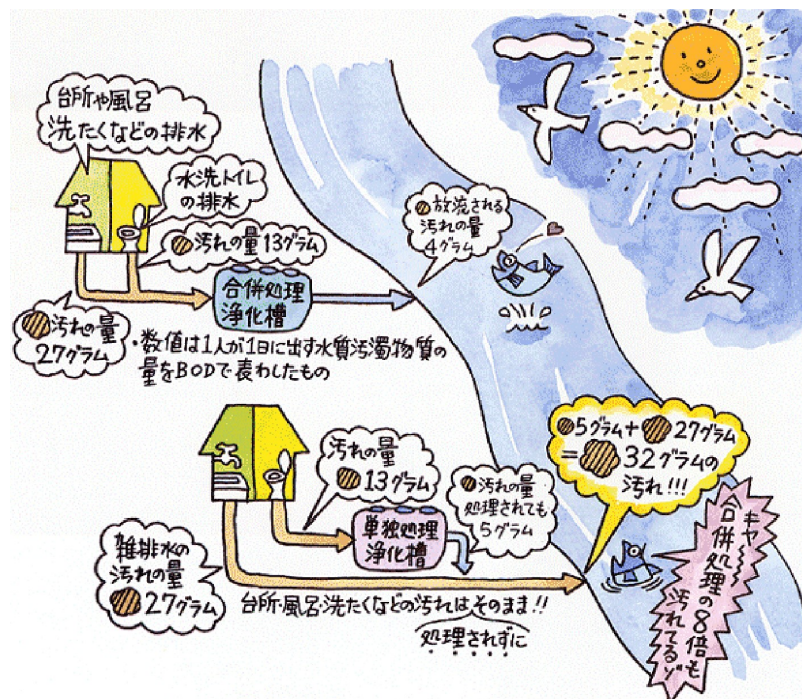 台所や風呂
洗たくなどの排水
水洗トイレ
の排水
汚れの量13グラム
合併処理
浄化槽
汚れの量
27グラム
放流される
汚れの量
4グラム
・数値は1人が1日に出す水質汚濁物質の
量をBODで表わしたもの
汚れの量
13グラム
単独処理
浄化槽
汚れの量
処理されても
5グラム
雑排水の
汚れの量
27グラム
台所・風呂・洗たくなどの汚れはそのまま!!
処理されずに
5グラム+27グラム
=32グラムの
汚れ!!!
キャ〜〜
合併処理の8倍も
汚れてるゾ